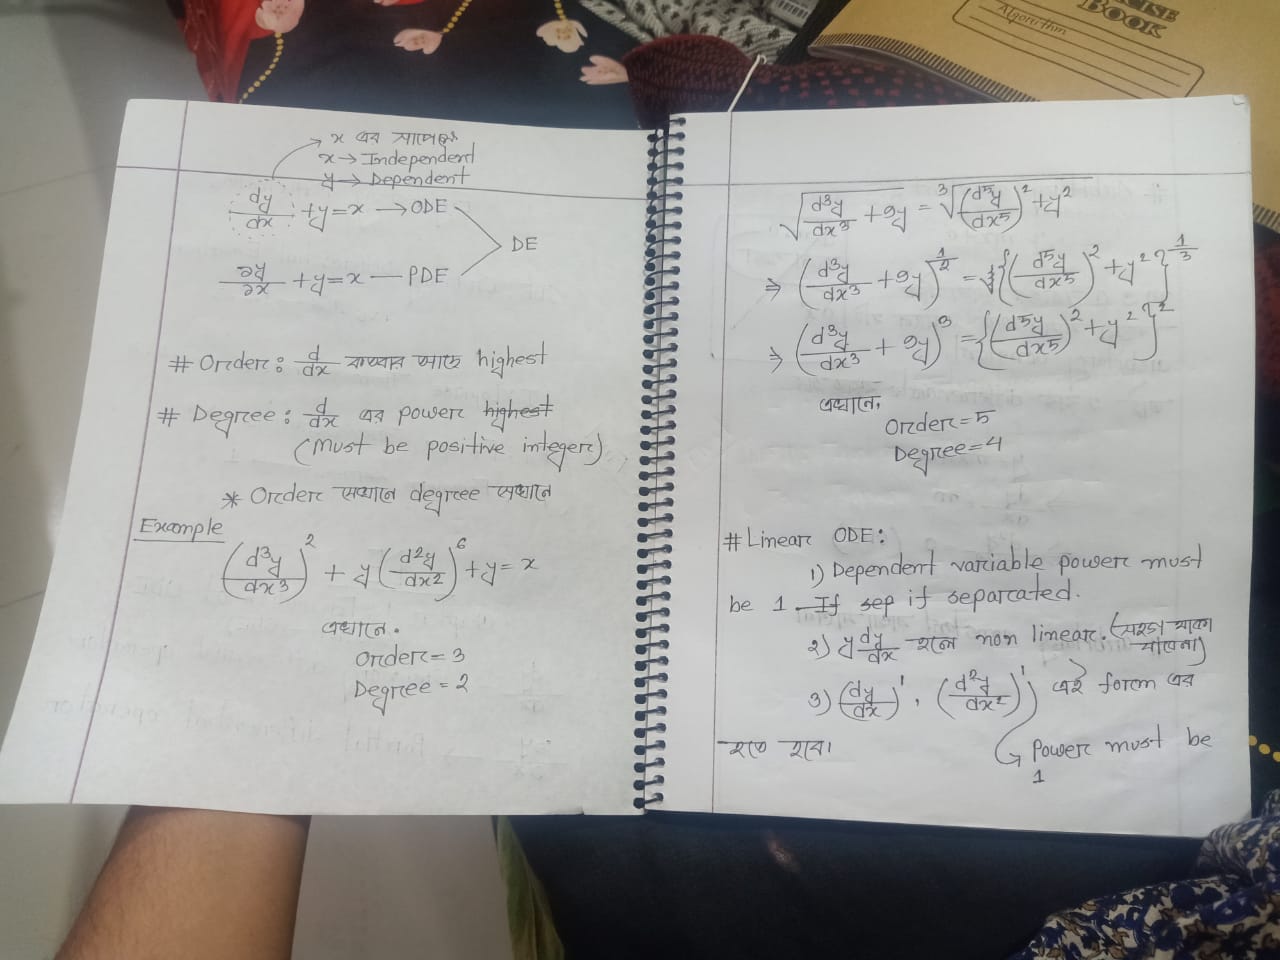 CISE
BOOK
Algorithm
x এর সাপেক্ষে
x → Independent
y → Dependent
dy/dx + y = x → ODE
DE
∂y/∂x + y = x — PDE
# Order: d/dx highest
# Degree: d/dx এর power highest
(Must be positive integer)
* Order যেখানে degree সেখানে
Example
(d³y/dx³)² + y(d²y/dx²)⁶ + y = x
এখানে,
Order = 3
Degree = 2
√(d³y/dx³ + 9y) = ³√((d⁵y/dx⁵)² + y²)
⇒ (d³y/dx³ + 9y)^(1/2) = {(d⁵y/dx⁵)² + y²}^(1/3)
⇒ (d³y/dx³ + 9y)³ = {(d⁵y/dx⁵)² + y²}²
এখানে,
Order = 5
Degree = 4
# Linear ODE:
1) Dependent variable power must
be 1 If sep if separated.
২) y dy/dx হলে non linear.
৩) (dy/dx)¹, (d²y/dx²)¹, এই form এর
হতে হবে।
Power must be
1